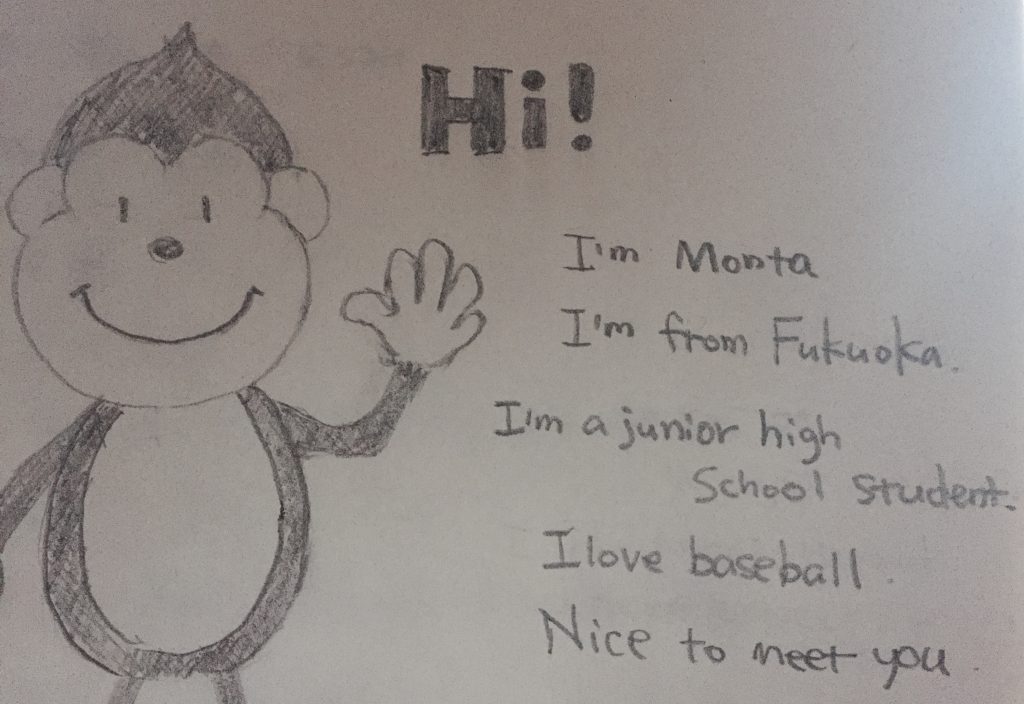 Hi!
I'm Monta
I'm from Fukuoka.
I'm a junior high
School student.
I love baseball.
Nice to meet you.